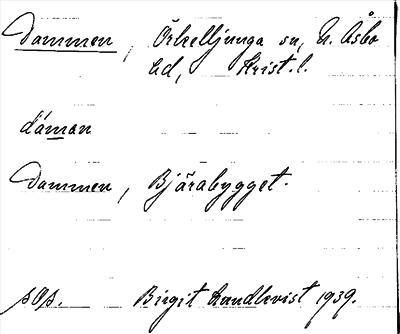 Dammen, Örkelljunga sn, N. Åsbo
hd, Krist. l.
dáman
Dammen, Bjärabygget.
sOs. Birgit Lundkvist 1939.